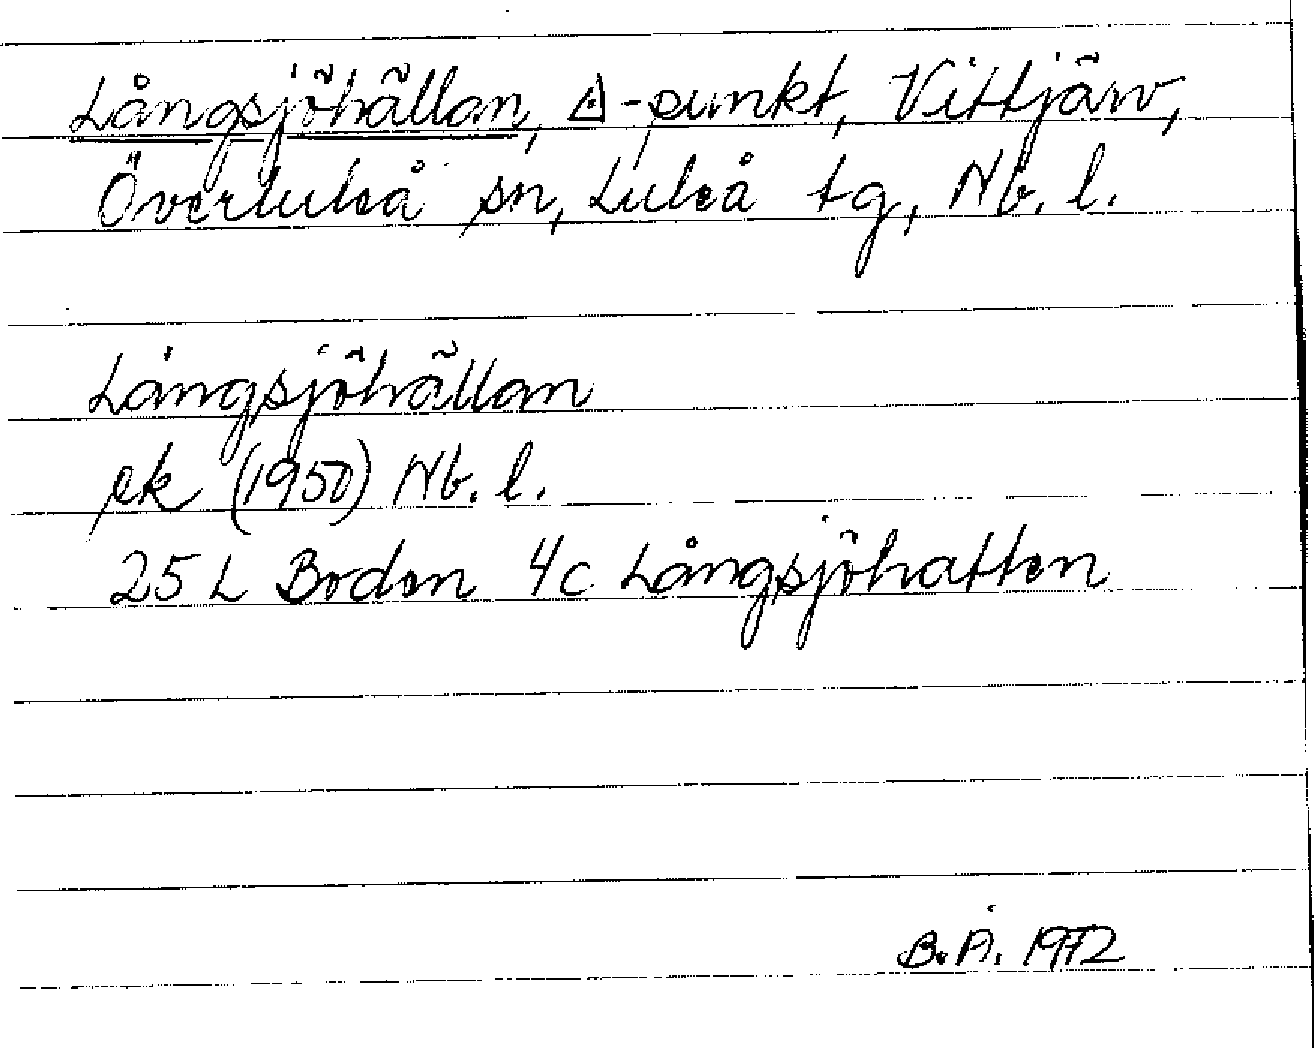 Långsjöhällan, △-punkt, Vittjärv,
Överluleå sn, Luleå tg, Nb. l.
Långsjöhällan
ek (1950) Nb. l.
25 L Boden 4c Långsjöhatten
B.Å. 1972